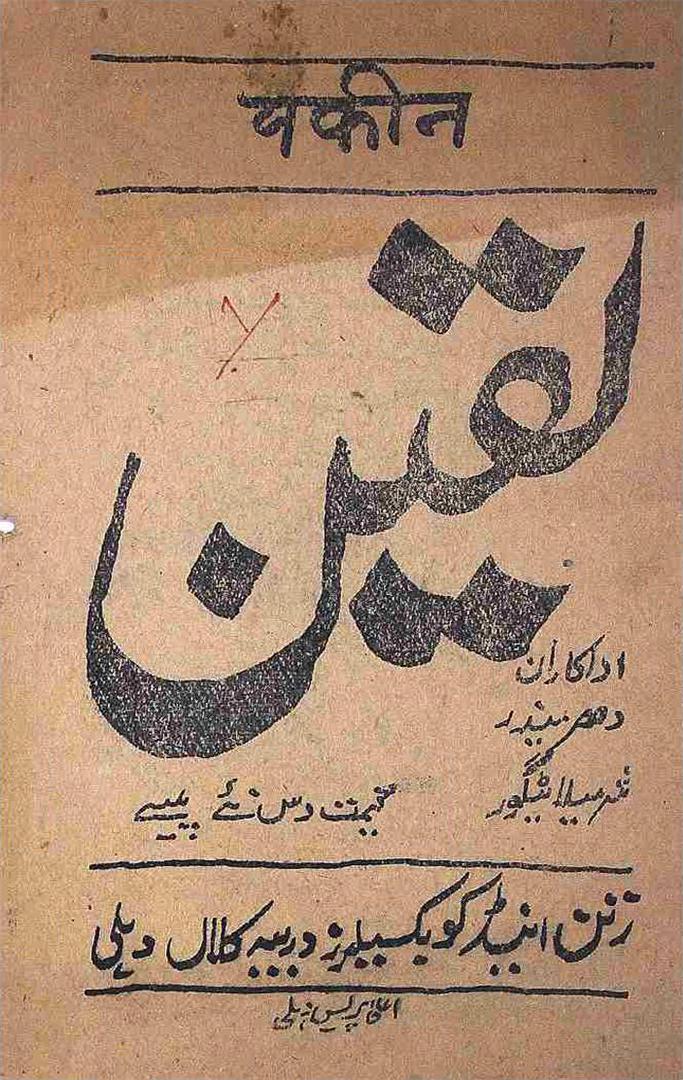 यकीन
یقین
اداکاران
دھرمیندر
شرمیلا ٹیگور
قیمت دس نئے پیسے
رتن اینڈ کو بکسیلرز دریبہ کلال دہلی
اعلیٰ پریس دہلی